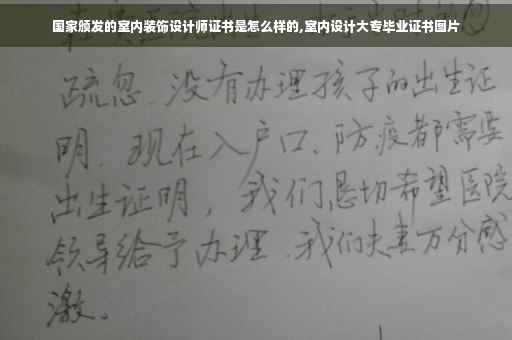 国家颁发的室内装饰设计师证书是怎么样的,室内设计大专毕业证书图片
疏忽.没有办理孩子的出生证
明.现在入户口、防疫都需要
出生证明，我们恳切希望医院
领导给予办理.我们夫妻万分感
激。